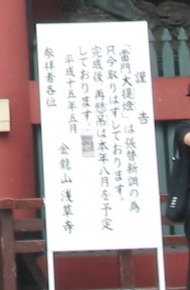 謹告
「雷門大提燈」は張替新調の為
只今取りはずしております。
完成後再懸吊は本年八月を予定
しております。
平成十五年五月
金龍山浅草寺
参拝者各位